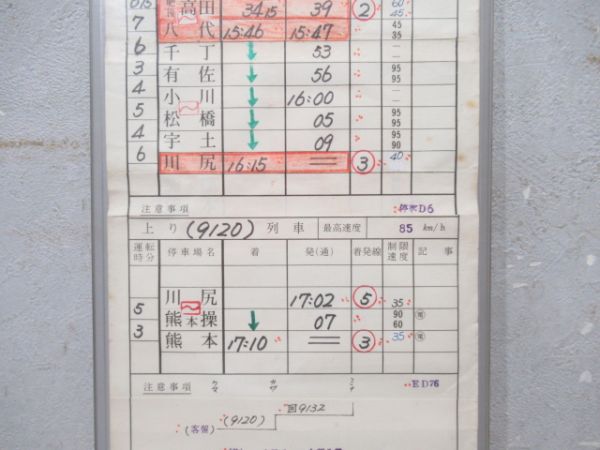 015 高田 3415 39 ② 60 45
7 八代 15:46 15:47 45 35
6 千丁 ↓ 53 — —
3 有佐 ↓ 56 95 95
4 小川 ↓ 16:00 — —
5 松橋 ↓ 05 95 95
4 宇土 ↓ 09 95 90
6 川尻 16:15 == ③ 40
注意事項 D6
上り (9120) 列車 最高速度 85 km/h
運転時分 停車場名 着 発(通) 着発線 制限速度 記事
川尻 17:02 ⑤ 35
5 熊本操 ↓ 07 90 60
3 熊本 17:10 == ③ 35
注意事項 ED76
9132
(客留) (9120)